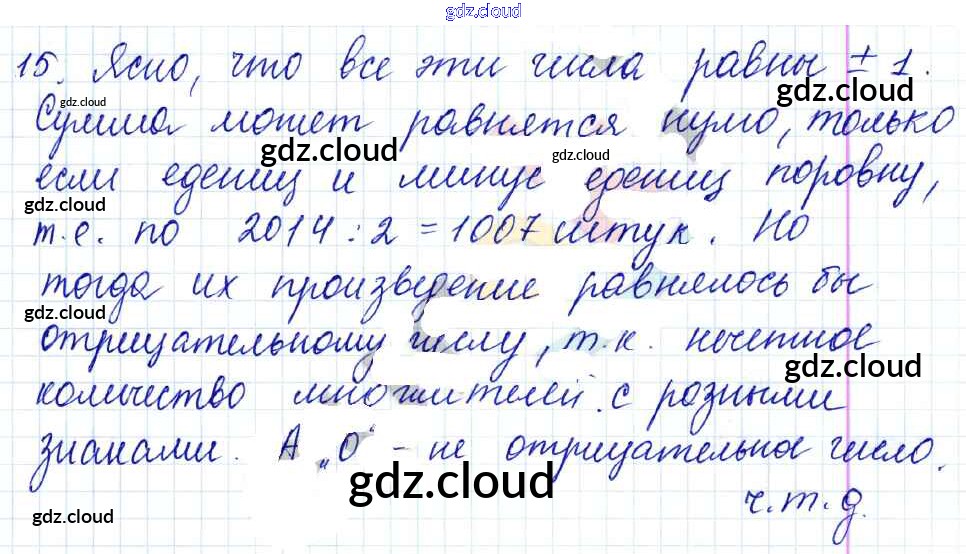 gdz.cloud
15. Ясно, что все эти числа равны ± 1.
gdz.cloud
gdz.cloud
Сумма может равнятся нулю, только
gdz.cloud
gdz.cloud
если едениц и минус едениц поровну,
gdz.cloud
т.е. по 2014 : 2 = 1007 штук. Но
тогда их произведение равнялось бы
gdz.cloud
отрицательному числу, т.к. нечетное
gdz.cloud
количество множителей с разными
знаками. А „0“ - не отрицательное число.
gdz.cloud
ч.т.д.
gdz.cloud